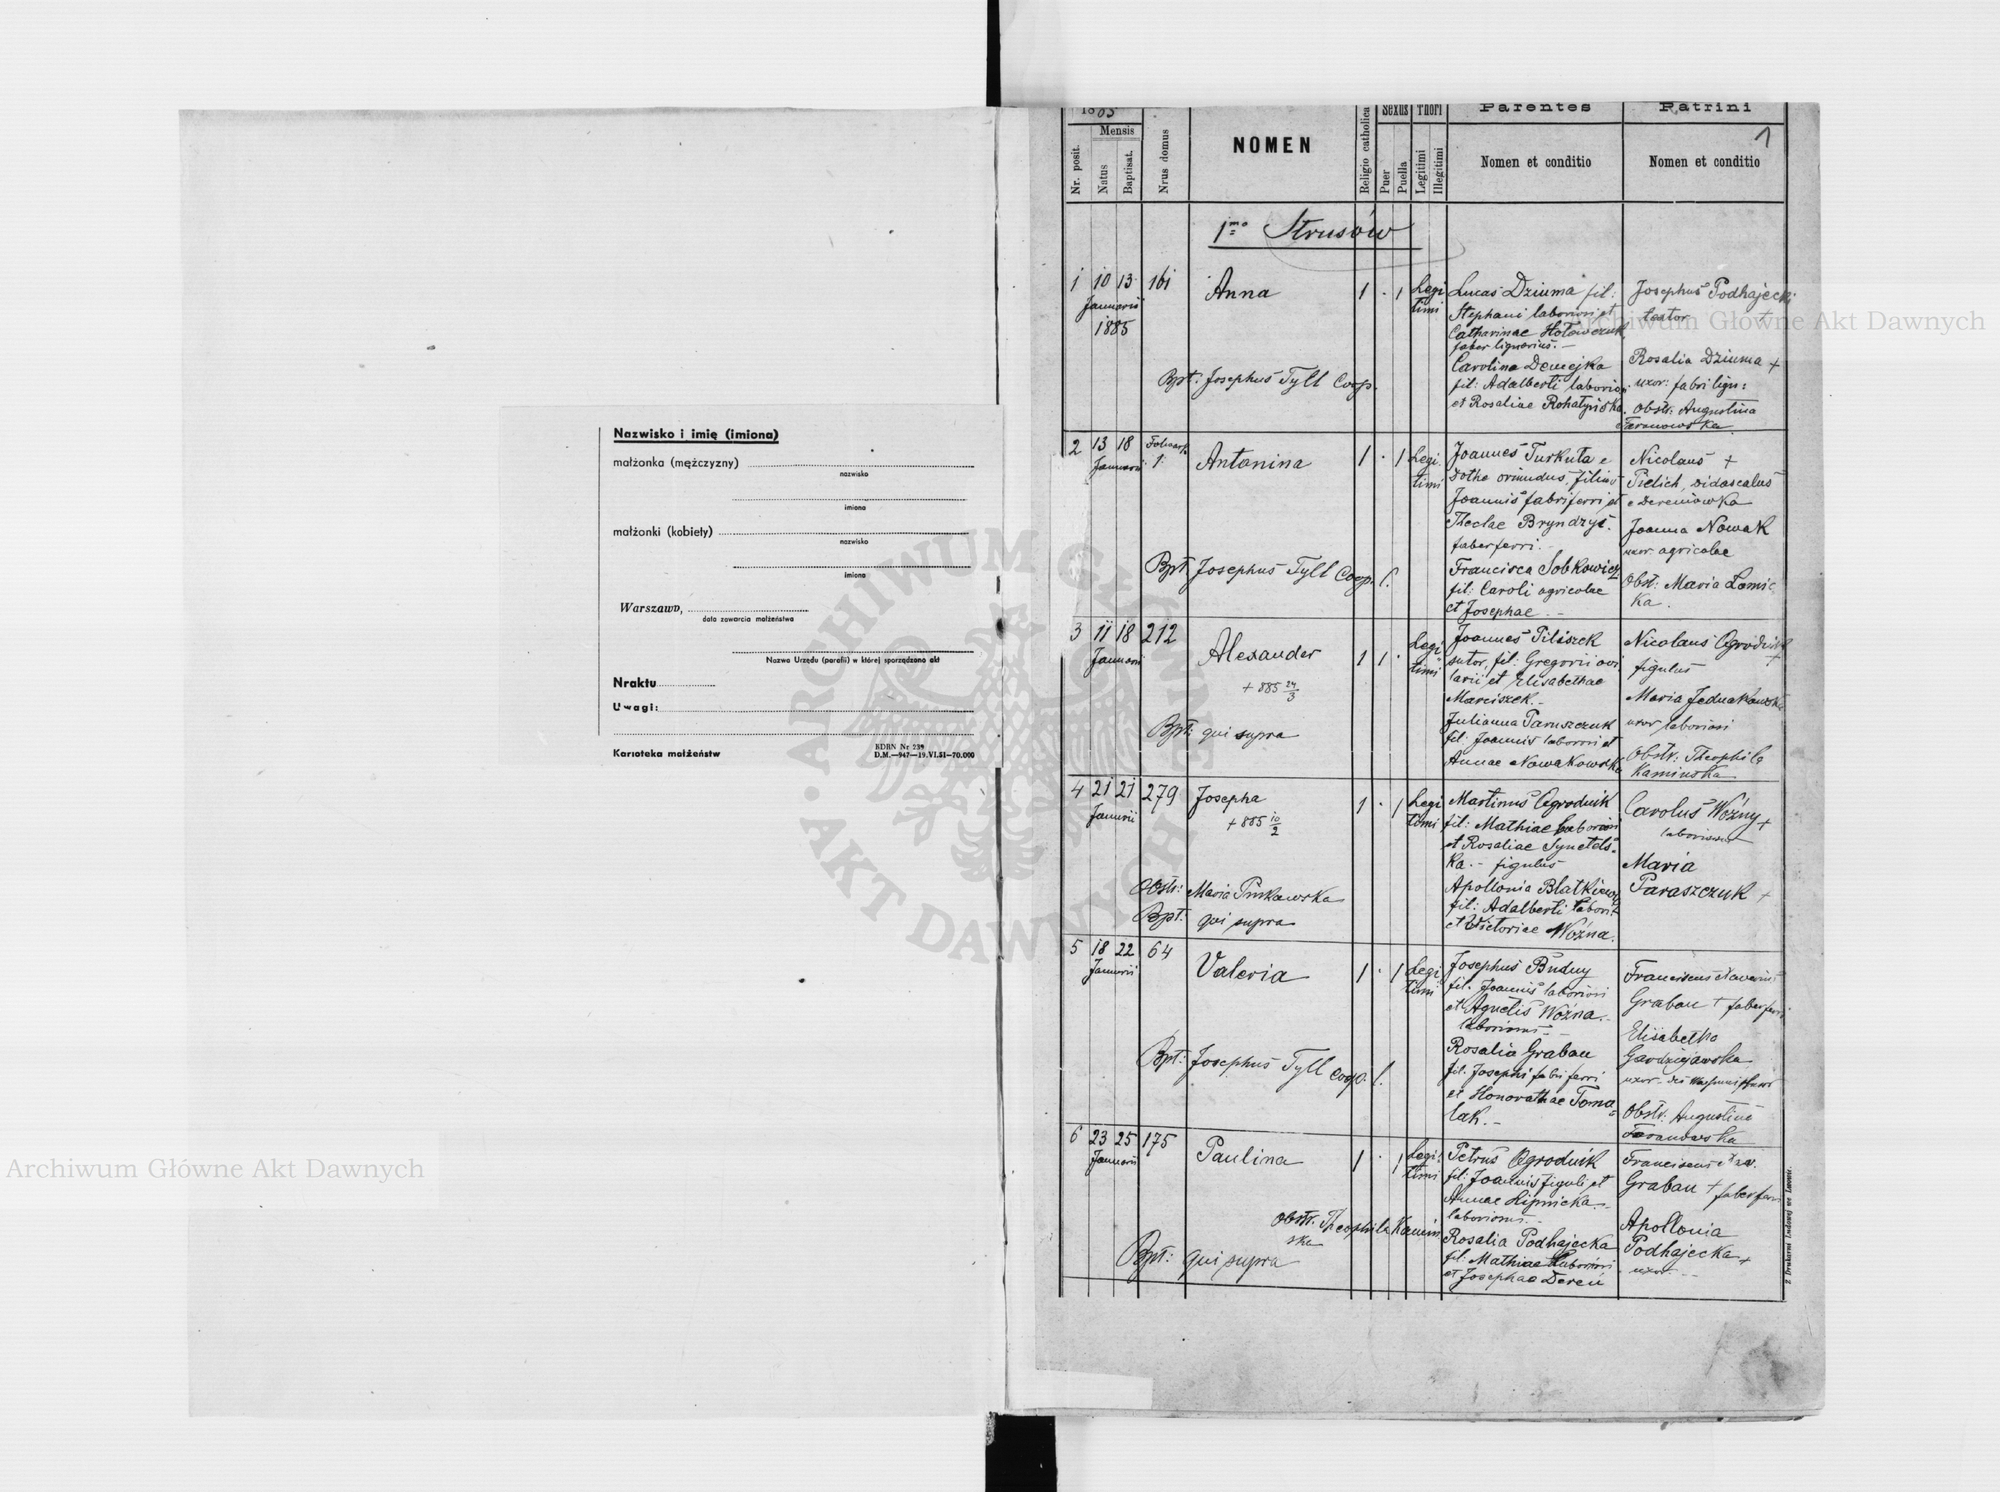 Nazwisko i imię (imiona)
małżonka (mężczyzny)
nazwisko
imiona
małżonki (kobiety)
nazwisko
imiona
Warszawa,
data zawarcia małżeństwa
Nazwa Urzędu (parafii) w której sporządzono akt
Nr aktu
Uwagi:
Kartoteka małżeństw
KDRN Nr 239
D.M.—947—19.VI.51—70.000
Archiwum Główne Akt Dawnych
ARCHIWUM GŁÓWNE AKT DAWNYCH
1885
Mensis
Nr. posit.
Natus
Baptisat.
Nrus domus
NOMEN
Religio catholica
Sexus
Puer
Puella
Thori
Legitimi
Illegitimi
Parentes
Nomen et conditio
Patrini
Nomen et conditio
1
1mo Strusów
1 10 13 161 Anna 1 · 1 Legi
timi
Januarii
1885
Lucas Dziuma fil:
Stephani laboriosi et
Catharinae Hołowczuk
faber lignarius.—
Carolina Demejka
fil: Adalberti laboriosi
et Rosaliae Rohatyńska.
Josephus Podhajecki
textor +
Rosalia Dziuma +
uxor: fabri lign:
Obstr: Augustina
Taranowska
Bpt: Josephus Tyll Coop.
2 13 18 Folwark 1. Antonina 1 · 1 Legi
timi
Januarii
Joannes Turkuta e
oriundus, filius
Joannis fabri ferri et
Theclae Bryndzyś.
faber ferri.—
Francisca Sobkowicz
fil: Caroli agricolae
et Josephae.—
Nicolaus +
Pielich, didascalus
e Dereniówka
Joanna Nowak
uxor agricolae
Obst: Maria Lomic
ka.
Bpt. Josephus Tyll Coop.
3 11 18 212 Alexander 1 1 · Legi
timi
Januarii
+ 885 24/3
Joannes Piliszek
sutor, fil: Gregorii
et Elisabethae
Marciszek.—
Julianna Paruszczuk
fil: Joannis laboriosi et
Annae Nowakowska
Nicolaus Ogrodnik
figulus +
Maria Jednakowska
uxor laboriosi
Obstr: Theophila
Kamińska
Bpt: qui supra
4 21 21 279 Josepha 1 · 1 Legi
timi
Januarii
+ 885 10/2
Martinus Ogrodnik
fil: Mathiae laboriosi
et Rosaliae
ka.— figulus
Apollonia Blatkiewicz
fil: Adalberti laborio
et Victoriae Woźna.
Carolus Woźny +
laboriosus
Maria
Paraszczuk +
Obstr: Maria
Bpt. qui supra
5 18 22 64 Valeria 1 · 1 Legi
timi
Januarii
Josephus Budny
fil. Joannis laboriosi
et Agnetis Woźna.—
laboriosus.—
Rosalia Graban
fil: Josephi fabri ferri
et Honorathae Toma=
lak.—
Franciscus Xaverius
Graban + faber ferri
Elisabetha
uxor
Obstr. Augustina
Taranowska
Bpt: Josephus Tyll Coop.
6 23 25 175 Paulina 1 · 1 Legi
timi
Januarii
Petrus Ogrodnik
fil: Joannis figuli et
Annae Lipnicka.—
laboriosus.—
Rosalia Podhajecka
fil: Mathiae laboriosi
et Josephae Dereń
Franciscus Xav.
Graban + faber ferri
Apollonia
Podhajecka +
uxor
Obstr. Theophila Kamiń
ska
Bpt: qui supra
Z Drukarni Ludowej we Lwowie.
Archiwum Główne Akt Dawnych